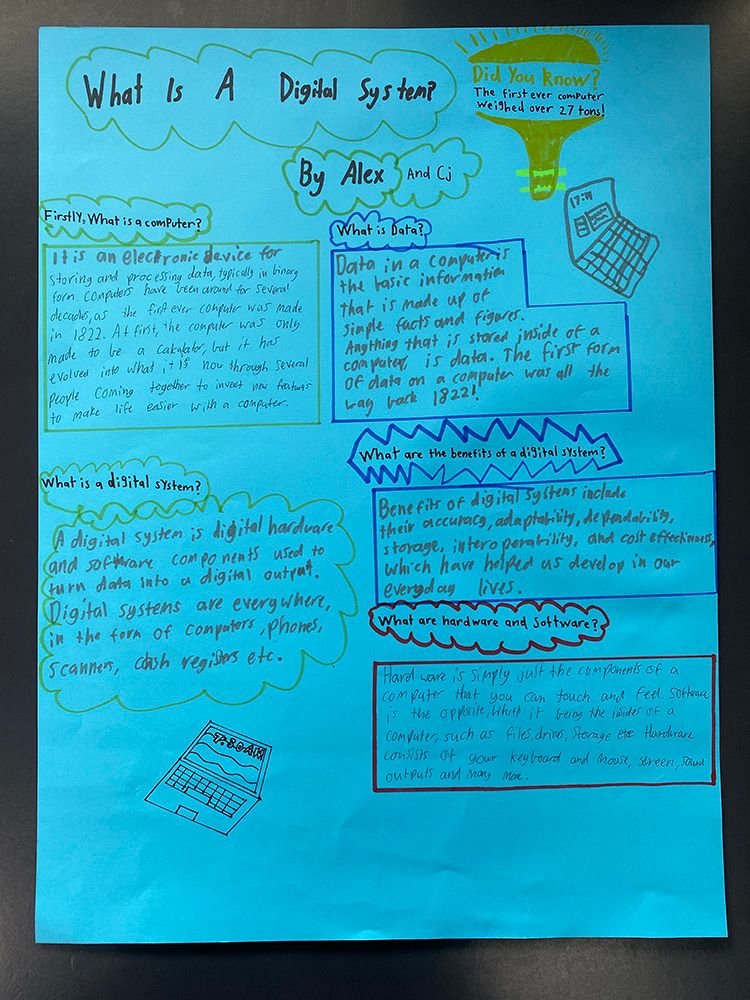 What Is A Digital System?
Did You Know?
The first ever computer
weighed over 27 tons!
By Alex And Cj
Firstly, What is a computer?
It is an electronic device for
storing and processing data, typically in binary
form. Computers have been around for several
decades, as the first ever computer was made
in 1822. At first, the computer was only
made to be a calculator, but it has
evolved into what it is now through several
people coming together to invent new features
to make life easier with a computer.
What is Data?
Data in a computer is
the basic information
that is made up of
simple facts and figures.
Anything that is stored inside of a
computer, is data. The first form
of data on a computer was all the
way back 1822!
17:14
What is a digital system?
A digital system is digital hardware
and software components used to
turn data into a digital output.
Digital systems are everywhere,
in the form of computers, phones,
scanners, cash registers etc.
What are the benefits of a digital system?
Benefits of digital systems include
their accuracy, adaptability, dependability,
storage, interoperability, and cost effectiveness,
which have helped us develop in our
everyday lives.
What are hardware and software?
Hard ware is simply just the components of a
computer that you can touch and feel. Software
is the opposite, which it being the insides of a
computer, such as files, drives, storage etc. Hardware
consists of your keyboard and mouse, screen, sound
outputs and many more.
7:30AM